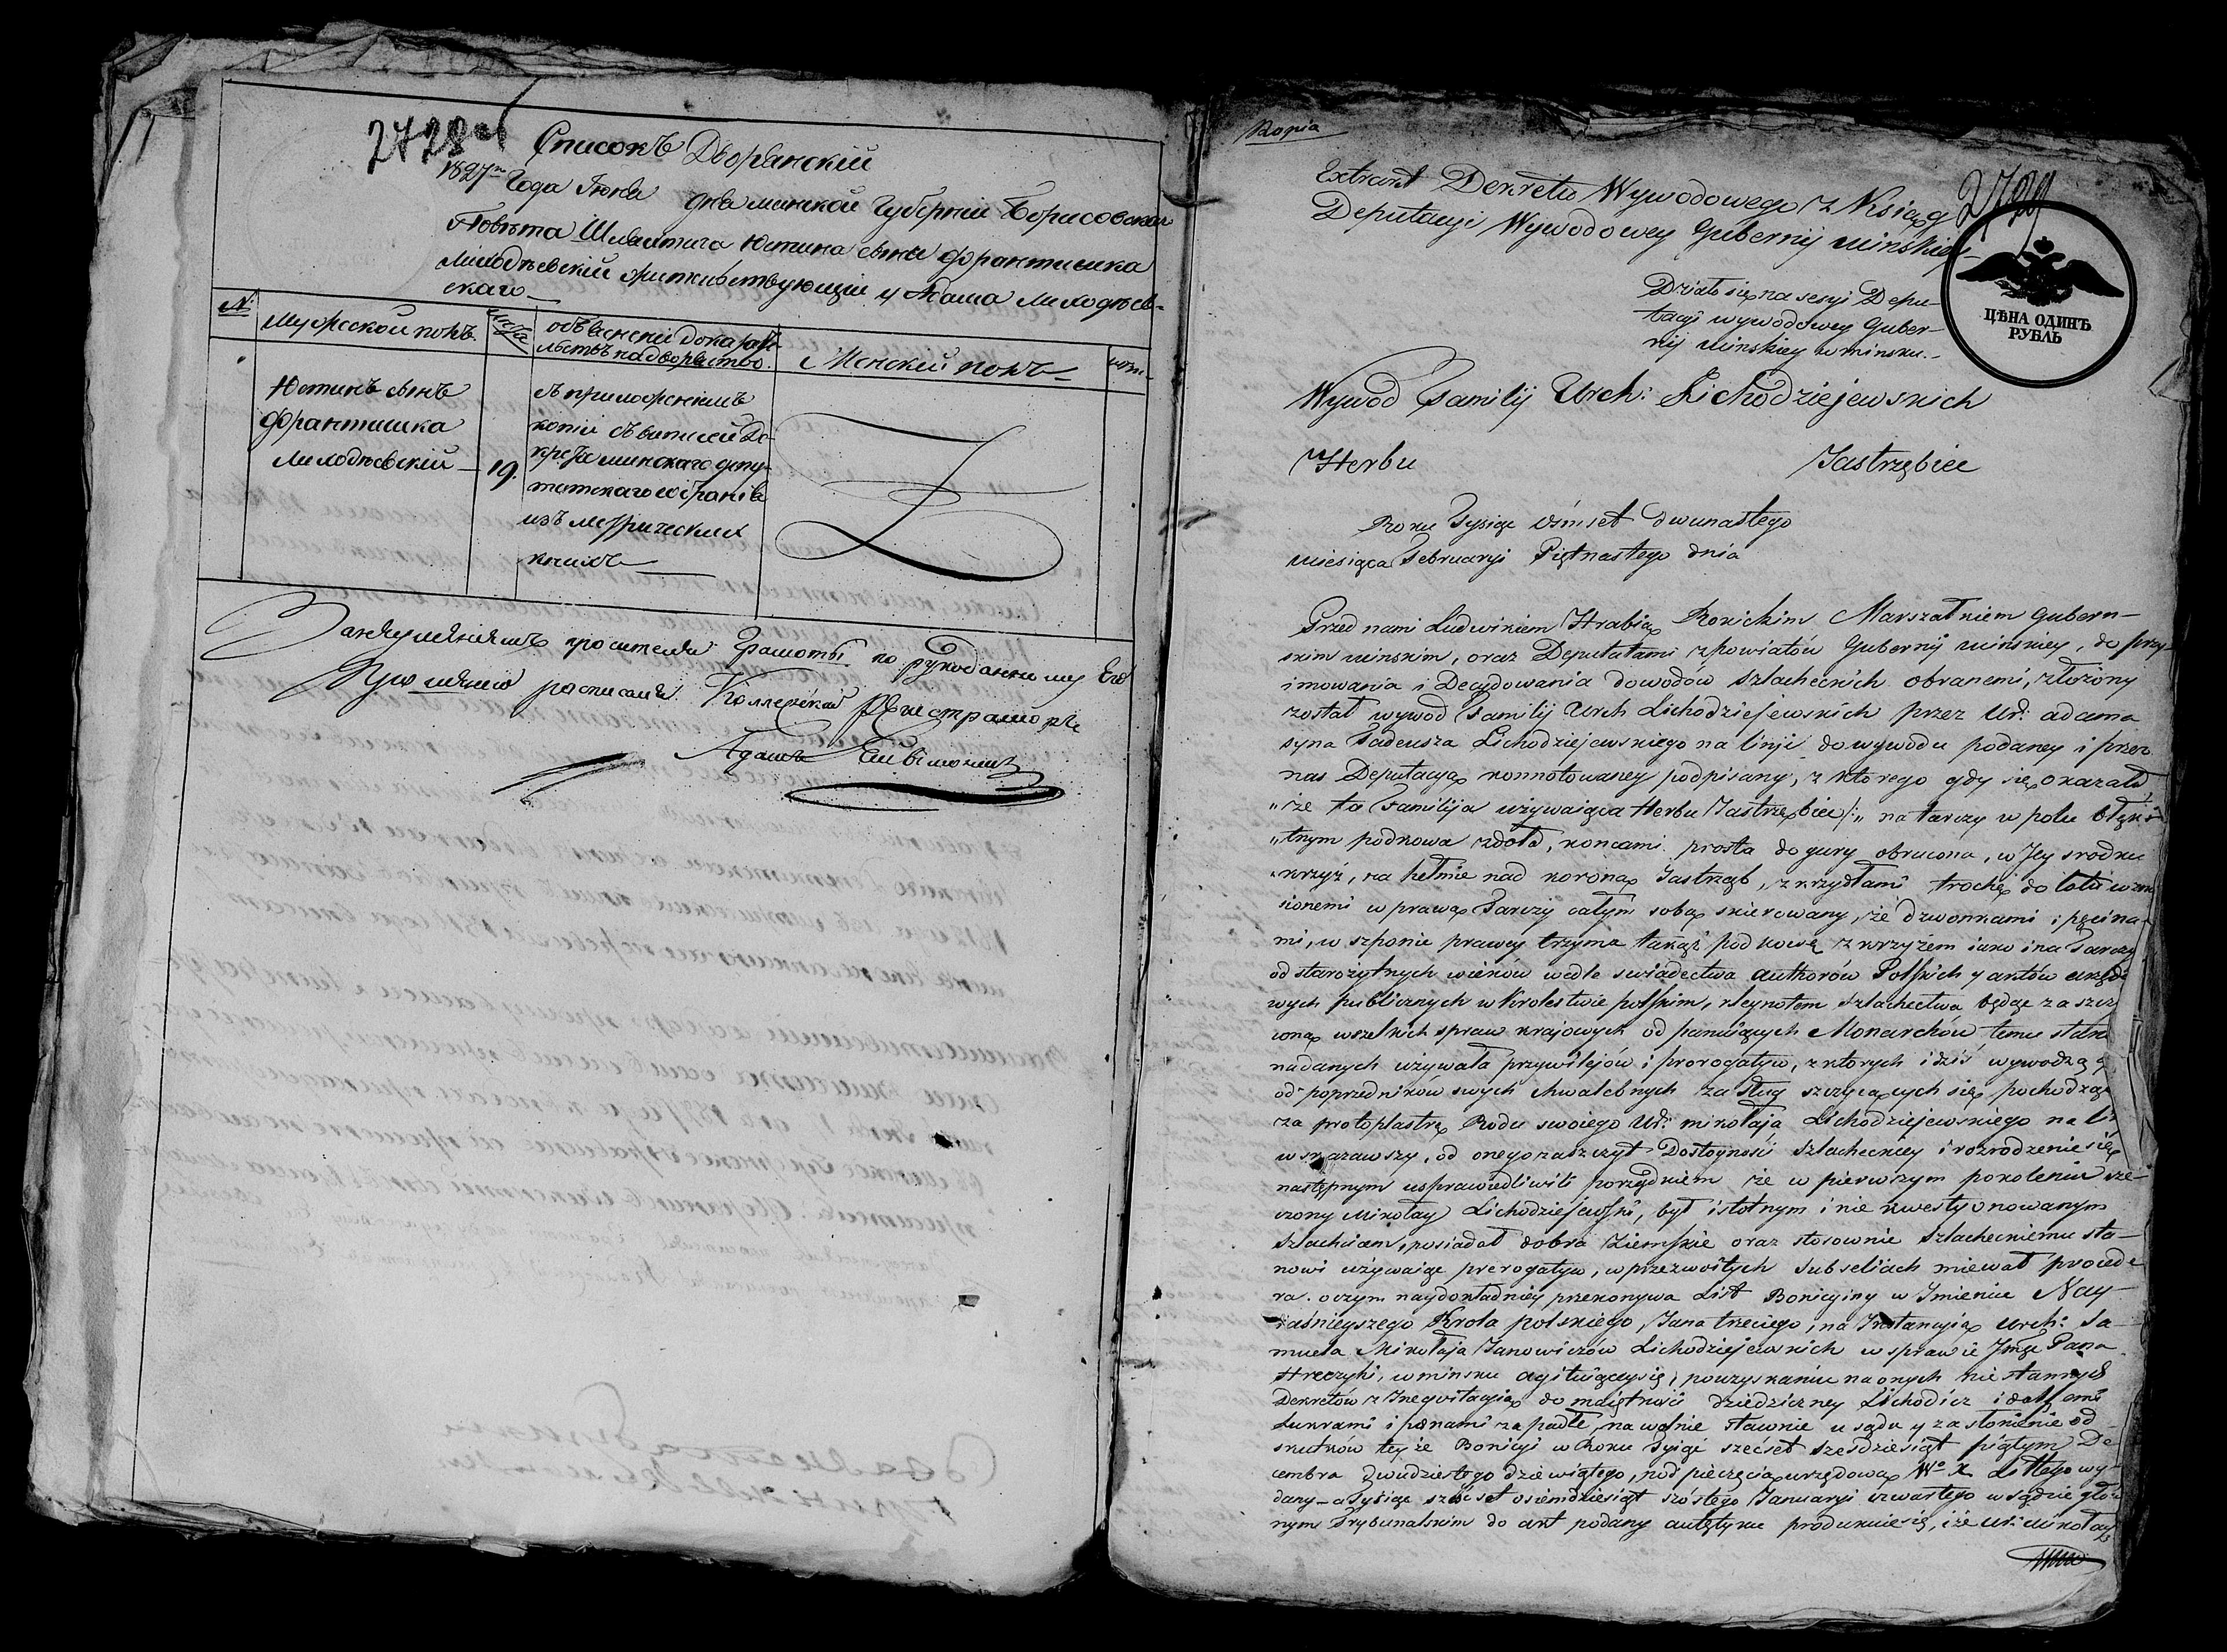 2728 об
Списокъ Дворянскій
1827го Года Іюня дня минской Губерніи Борисовскаго
Повѣта Шляхтича Юстина сына Франтишка
Лиходѣевскій жительствующій у Адама Лиходѣев-
скаго
№
Мужеской полъ
лѣта
объясненія доказа-
льствъ на дворянство
Женской полъ
лѣта
Юстинъ сынъ
Франтишка
Лиходѣевскій
19.
съ приложеніемъ
копіи съ выписи Де-
крета минскаго депу-
татскаго собранія
изъ метрическихъ
книгъ
За неумѣніемъ просителя Грамоты по рукоданному Его
Прошенію росписался Коллежскій Регистраторъ
Адамъ
Kopia
Extrakt Dekretu Wywodowego z Ksiąg
2729
Deputacyi Wywodowey Gubernij Mińskiey
Działo się na sesyi Depu-
tacyi wywodowey Guber-
nij Mińskiey w Mińsku.
ЦѢНА ОДИНЪ
РУБЛЬ
Wywod Familij Urch: Lichodziejewskich
Herbu Jastrzębiec
Roku Tysiąc ośmset dwunastego
miesiąca Februaryi Piętnastego dnia
Przed nami Ludwikiem Hrabią Rokickim Marszałkiem Gubern-
skim Mińskim, oraz Deputatami z powiatów Gubernij Mińskiey, do przy-
imowania i Decydowania dowodów szlacheckich obranemi, złożony
został wywod Familij Urch Lichodziejewskich przez Ur: Adama
syna Tadeusza Lichodziejewskiego na linji do wywodu podaney i przez
nas Deputacyą konnotowaney podpisany, z ktorego gdy się okazało
„że ta Familija używaiąca Herbu Jastrzębiec /: „na tarczy w polu błęki-
„tnym podkowa złota, koncami prosto do gury obrucona, w Jey srodku
„krzyż, na hełmie nad koroną Jastrząb, z krzydłami trochę do lotu wznie
sionemi w prawą Tarczy całym sobą skierowany, ze dzwonkami i pęcina-
mi, w szponie prawey trzyma takąż podkowę z krzyżem iako i na Tarczy
od starożytnych wieków wedle swiadectwa authorów Polskich y aktów urzędo
wych publicznych w Krolestwie polskim, kleynotem szlachectwa będąc zaszczy
coną wszelkich spraw krajowych od panuiących Monarchów temu stano
nadanych używała przywilejów i prorogatyw, z ktorych i dziś wywodzą
od poprzedników swych chwalebnych zasług szczycących się pochodząc
za protoplastę Rodu swoiego Ur: Mikołaja Lichodziejewskiego na li
wskazawszy, od onego zaszczyt Dostoyność szlacheckiey i rozrodzenie się
następnym usprawiedliwili porządkiem że w pierwszym pokoleniu rze-
czony Mikołay Lichodziejewski, był istotnym i nie kwestyonowanym
szlachcicem, posiadał dobra ziemskie oraz stosownie szlacheckiemu sta-
nowi używaiąc prerogatyw, w przezwoitych Subseliach miewał procede
ra. o czym naydokładniey przekonywa List Bonicyiny w Imieniu Nay-
iaśnieyszego Krola polskiego, Jana trzeciego, na Instancyią Urch: Sa-
muela Mikołaja Janowiczów Lichodziejewskich w sprawie Jmć Pana
Hreczychi, w Mińsku agituiącey się, po uzyskaniu na onych nie stannych
Dekretów z Inequitacyią do maiętności dziedziczney Lichodicz i dalszemi
Lukrami i poenami zapadłe, na wolnie stawnie u sądu y zasłonienie od
skutków tey że Bonicyi w Roku Tysiąc szećset szesdziesiąt piątym De-
cembra dwudziestego dziewiątego, pod pieczęcią urzędową Wo X. Littgo wy-
dany a Tysiąc sześćset osiemdziesiąt szóstego Januaryi czwartego w sądzie głów
nym Trybunalskim do akt podany autętyku produkuie się, iże Ur: Mikołay